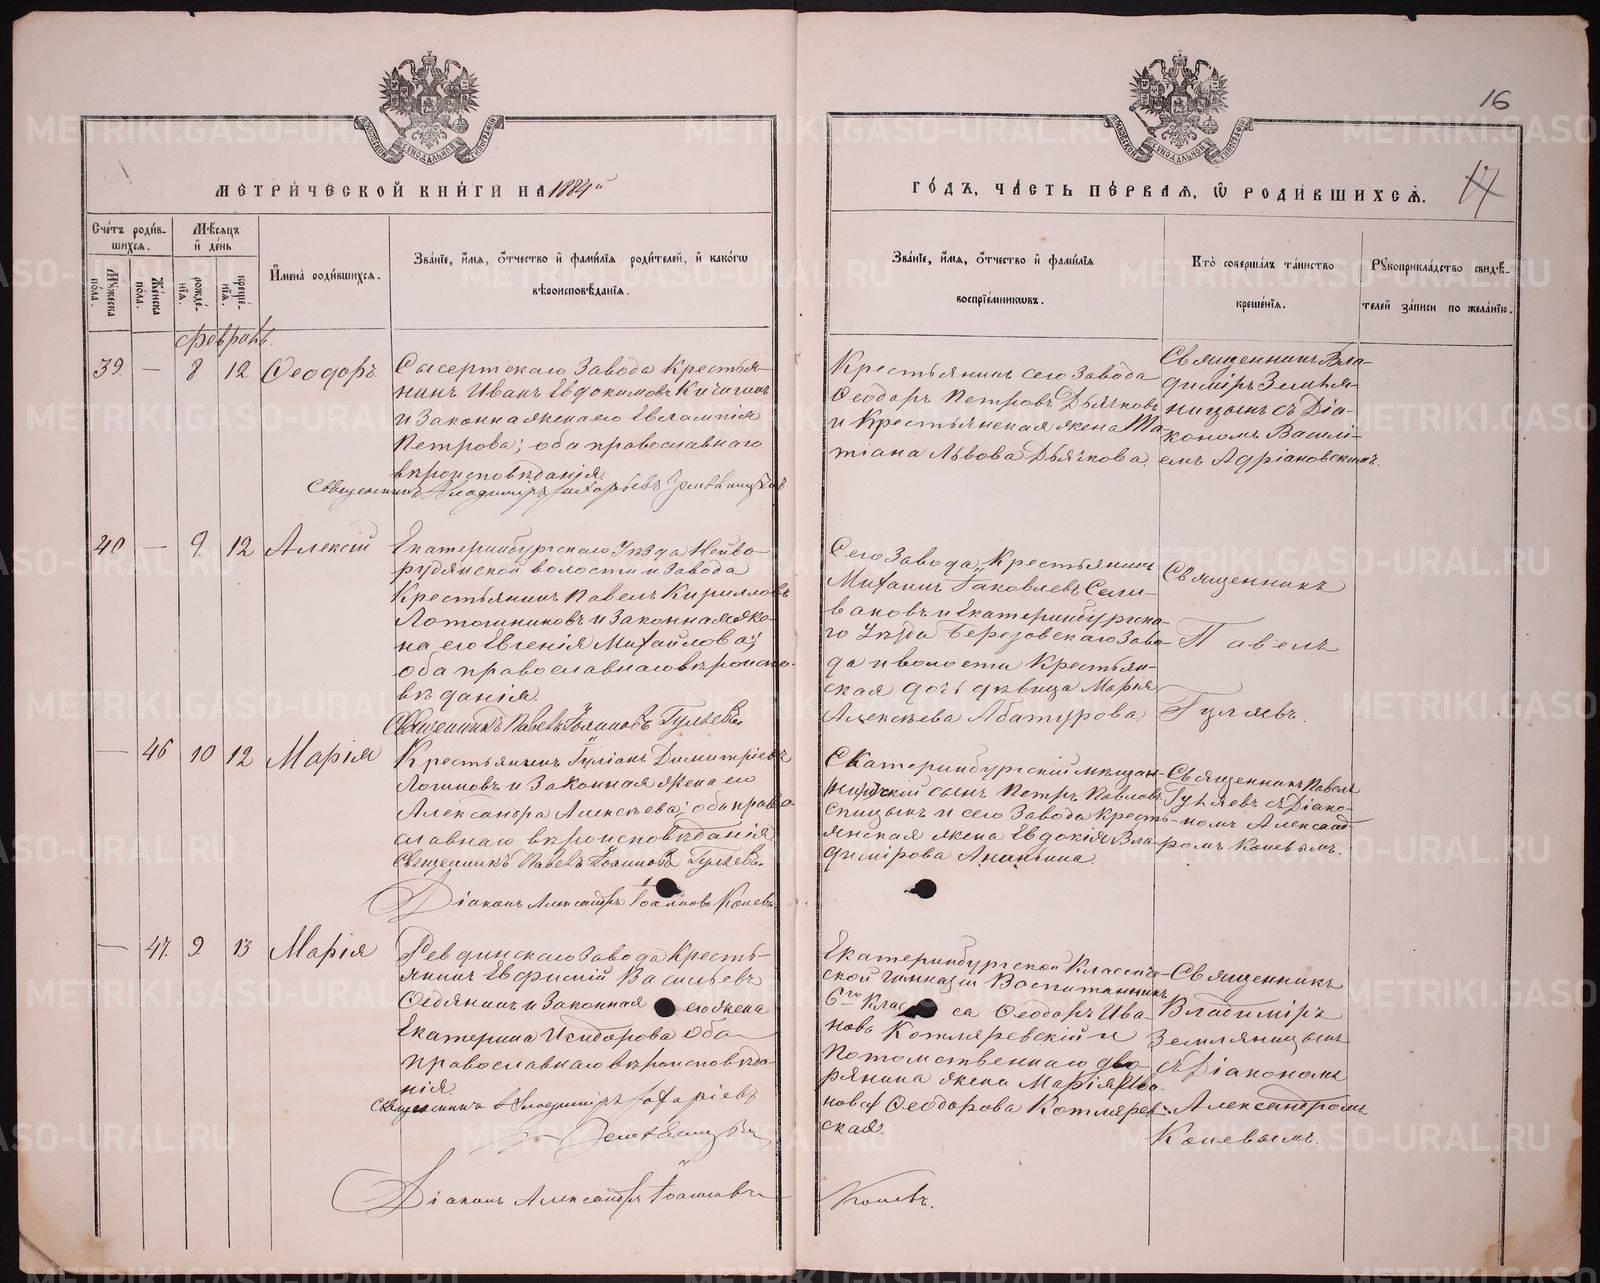 16
17
МЕТРИЧЕСКОЙ КНИГИ НА 1884й
ГОДЪ, ЧАСТЬ ПЕРВАЯ, Ѡ РОДИВШИХСЯ.
Счетъ родив-
шихся.
Мѣсяцъ
и день
Мужеска
пола.
Женска
пола.
рожде-
нія.
креще-
нія.
Имена родившихся.
Званіе, имя, отчество и фамилія родителей, и какогω
вѣроисповѣданія.
Званіе, имя, отчество и фамилія
воспріемниковъ.
Кто совершалъ таинство
крещенія.
Рукоприкладство свидѣ-
телей записи по желанію.
февраль.
39.
—
8
12
Ѳеодоръ
Сысертскаго Завода Крестья-
нинъ Иванъ Евдокимовъ Кичигинъ
и Законная жена его Евлампія
Петрова; оба православнаго
вѣроисповѣданія.
Священникъ Владимiръ Захарьевъ Земляницынъ
Крестьянинъ сего Завода
Ѳеодоръ Петровъ Дьячковъ
и Крестьянская жена Та-
тіана Львова Дьячкова.
Священникъ Вла-
димiръ Земля-
ницынъ съ Діа-
кономъ Василі-
емъ Адріановскимъ.
40
—
9.
12
Алексій
Екатеринбургскаго Уѣзда Нейво
рудянской волости и Завода
Крестьянинъ Павелъ Кирилловъ
Лотошниковъ и Законная же-
на его Евгенія Михайлова;
оба православнаго вѣроиспо-
вѣданія.
Священникъ Павелъ Іоанновъ Гуляевъ
Сего Завода Крестьянинъ
Михаилъ Іаковлевъ Сели-
вановъ и Екатеринбургска-
го Уѣзда Березовскаго Заво-
да и волости Крестьян-
ская дочь дѣвица Марія
Алексѣева Абатурова.
Священникъ
Павелъ
Гуляевъ.
—
46
10
12
Марія
Крестьянинъ Іуліанъ Димитріевъ
Логиновъ и Законная жена его
Александра Алексѣева; оба право-
славнаго вѣроисповѣданія
Священникъ Павелъ Іоанновъ Гуляевъ.
Діаконъ Александръ Іоанновъ Коневъ
Екатеринбургскій мѣщан-
скій сынъ Петръ Павловъ
Спицынъ и сего Завода Кресть-
янская жена Евдокія Вла-
димірова Ананьина.
Священникъ Павелъ
Гуляевъ съ Діако-
номъ Александ
ромъ Коневымъ.
—
47.
9.
13
Марія
Ревдинскаго Завода Кресть-
янинъ Евфимій Васильевъ
и Законная его жена
Екатерина Исидорова оба
православнаго вѣроисповѣда-
нія.
Священникъ Владимiръ Захаріевъ
Земляницынъ
Діаконъ Александръ Іоанновъ
Коневъ.
Екатеринбургской Классиче-
ской Гимназіи Воспитанникъ
6го Класса Ѳеодоръ Ива-
новъ Котляревскій и
потомственнаго дво-
рянина жена Марія (Ива-
нова) Ѳеодорова Котлярев-
ская.
Священникъ
Владиміръ
Земляницынъ
съ Діакономъ
Александромъ
Коневымъ.
METRIKI.GASO-URAL.RU